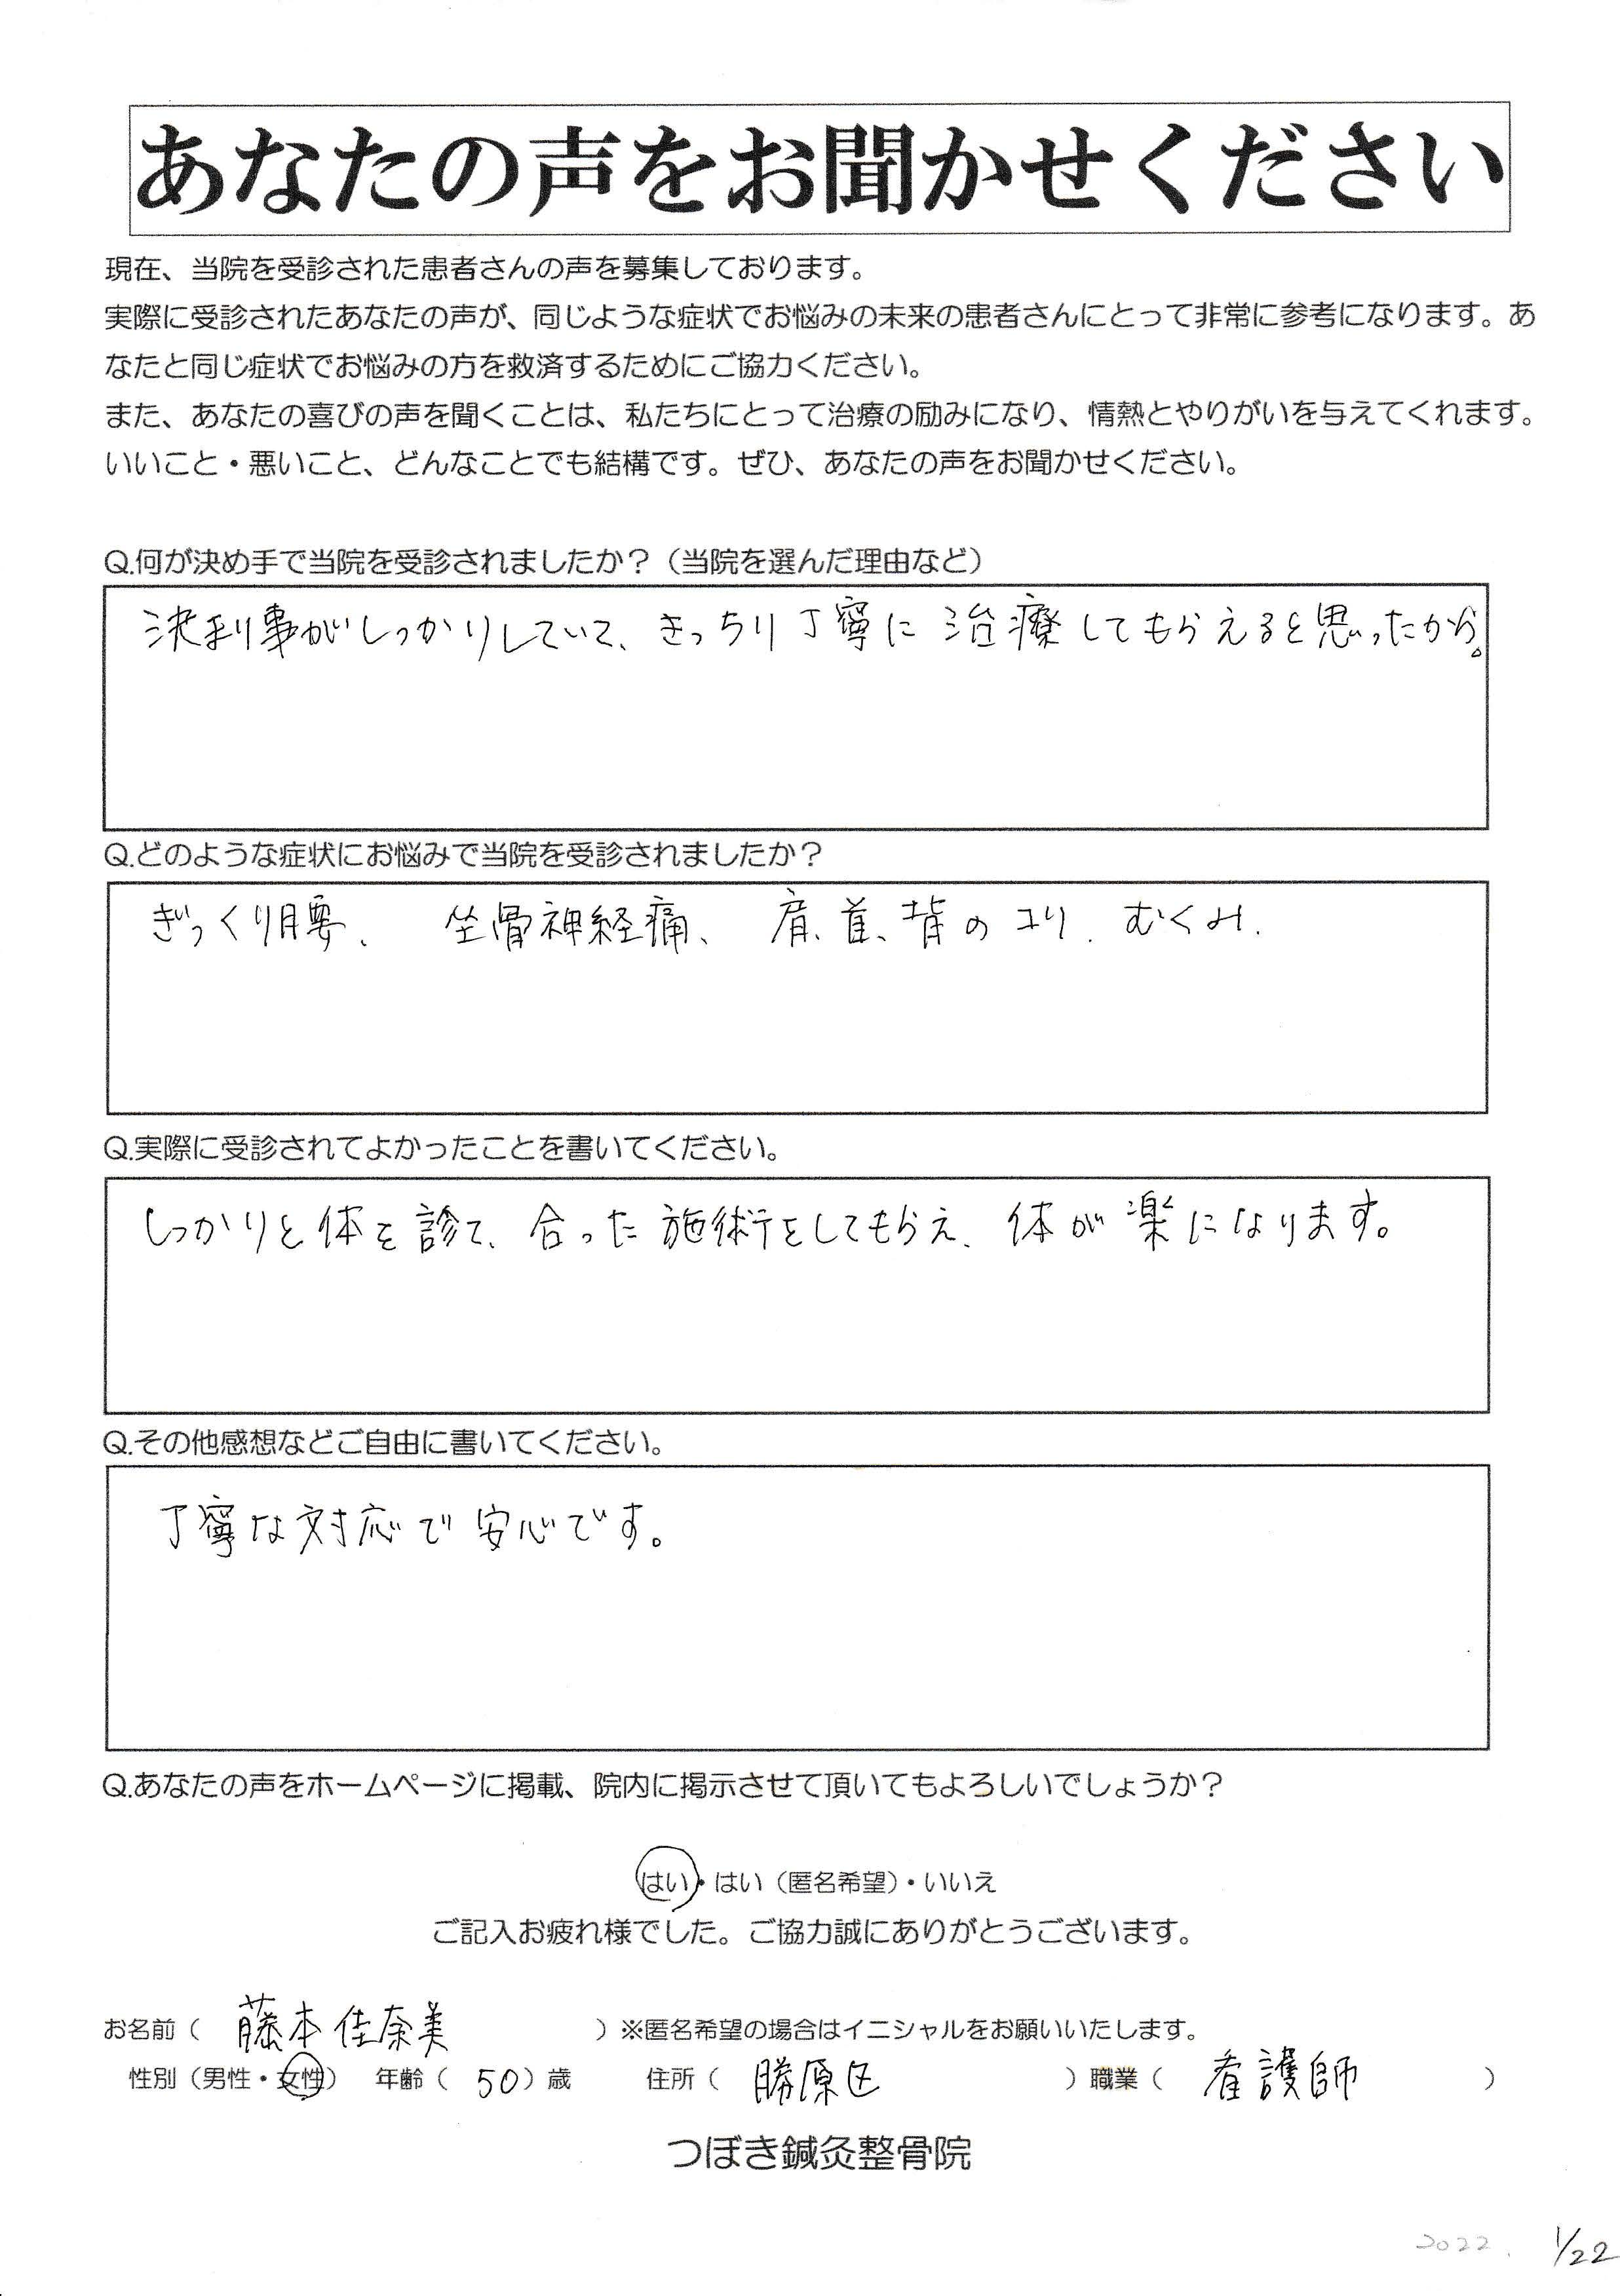 あなたの声をお聞かせください
現在、当院を受診された患者さんの声を募集しております。
実際に受診されたあなたの声が、同じような症状でお悩みの未来の患者さんにとって非常に参考になります。あ
なたと同じ症状でお悩みの方を救済するためにご協力ください。
また、あなたの喜びの声を聞くことは、私たちにとって治療の励みになり、情熱とやりがいを与えてくれます。
いいこと・悪いこと、どんなことでも結構です。ぜひ、あなたの声をお聞かせください。
Q.何が決め手で当院を受診されましたか？（当院を選んだ理由など）
決まり事がしっかりしていて、きっちり丁寧に治療してもらえると思ったから。
Q.どのような症状にお悩みで当院を受診されましたか？
ぎっくり腰、坐骨神経痛、肩、首、背のコリ、むくみ.
Q.実際に受診されてよかったことを書いてください。
しっかりと体を診て、合った施術をしてもらえ、体が楽になります。
Q.その他感想などご自由に書いてください。
丁寧な対応で安心です。
Q.あなたの声をホームページに掲載、院内に掲示させて頂いてもよろしいでしょうか？
はい・はい（匿名希望）・いいえ
ご記入お疲れ様でした。ご協力誠にありがとうございます。
お名前（ 藤本佳奈美 ）※匿名希望の場合はイニシャルをお願いいたします。
性別（男性・女性） 年齢（ 50）歳 住所（ 勝原区 ）職業（ 看護師 ）
つぼき鍼灸整骨院
2022. 1/22